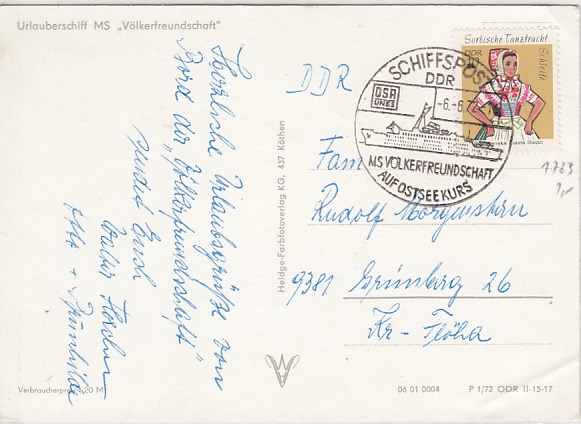 Urlauberschiff MS „Völkerfreundschaft"
Herzliche Urlaubsgrüße von
Bord der „Völkerfreundschaft"
sendet Euch
Otto + Brünhilde
DDR
Fam
Rudolf Morgenstern
9381 Grünberg 26
Kr- Flöha
SCHIFFSPOST
DDR
DSR
LINES
-6.-6.7
MS VÖLKERFREUNDSCHAFT
AUF OSTSEEKURS
Sorbische Tanztracht
DDR
Schleife
1723
1,-
Heldge-Farbfotoverlag KG, 437 Köthen
Verbraucherpreis 20 M
06 01 0004
P 1/72 ODR II-15-17